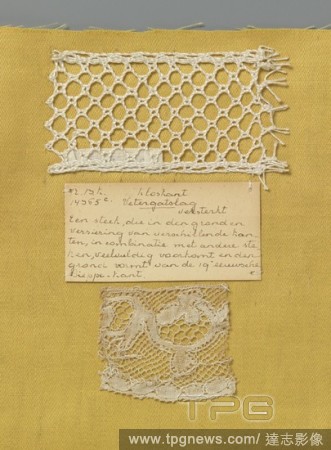 Kloskant
Vetergatslag
versterkt
Een steek, die in den grond en
versiering van verschillende kan-
ten, in combinatie met andere ste
ken, veelvuldig voorkomt en den
grond vormt van de 19e eeuwsche
kant.
TPG
www.tpgnews.com/達志影像